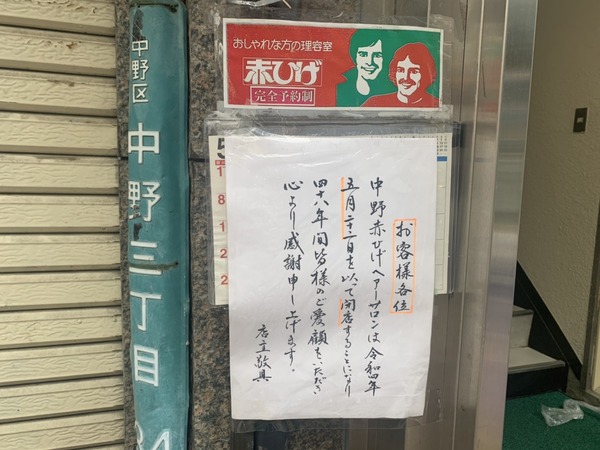 中野区 中野三丁目
おしゃれな方の理容室
赤ひげ
完全予約制
お客様各位
中野赤ひげヘアーサロンは令和四年
五月二十二日を以って閉店することになり
四十八年間皆様のご愛顧をいただき
心より感謝申し上げます。
店主敬具